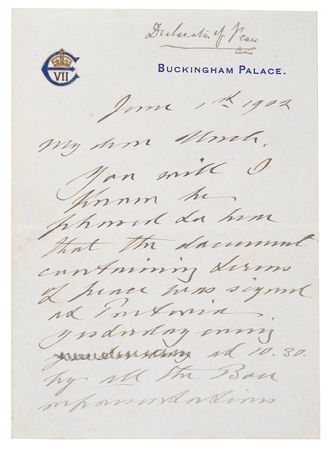 Declaration of Peace
VII
BUCKINGHAM PALACE.
June 1st 1902
My dear
You will I
know be
pleased to hear
that the document
containing terms
of peace was signed
at Pretoria
yesterday evening
at 10.30.
by all the Boer
representatives